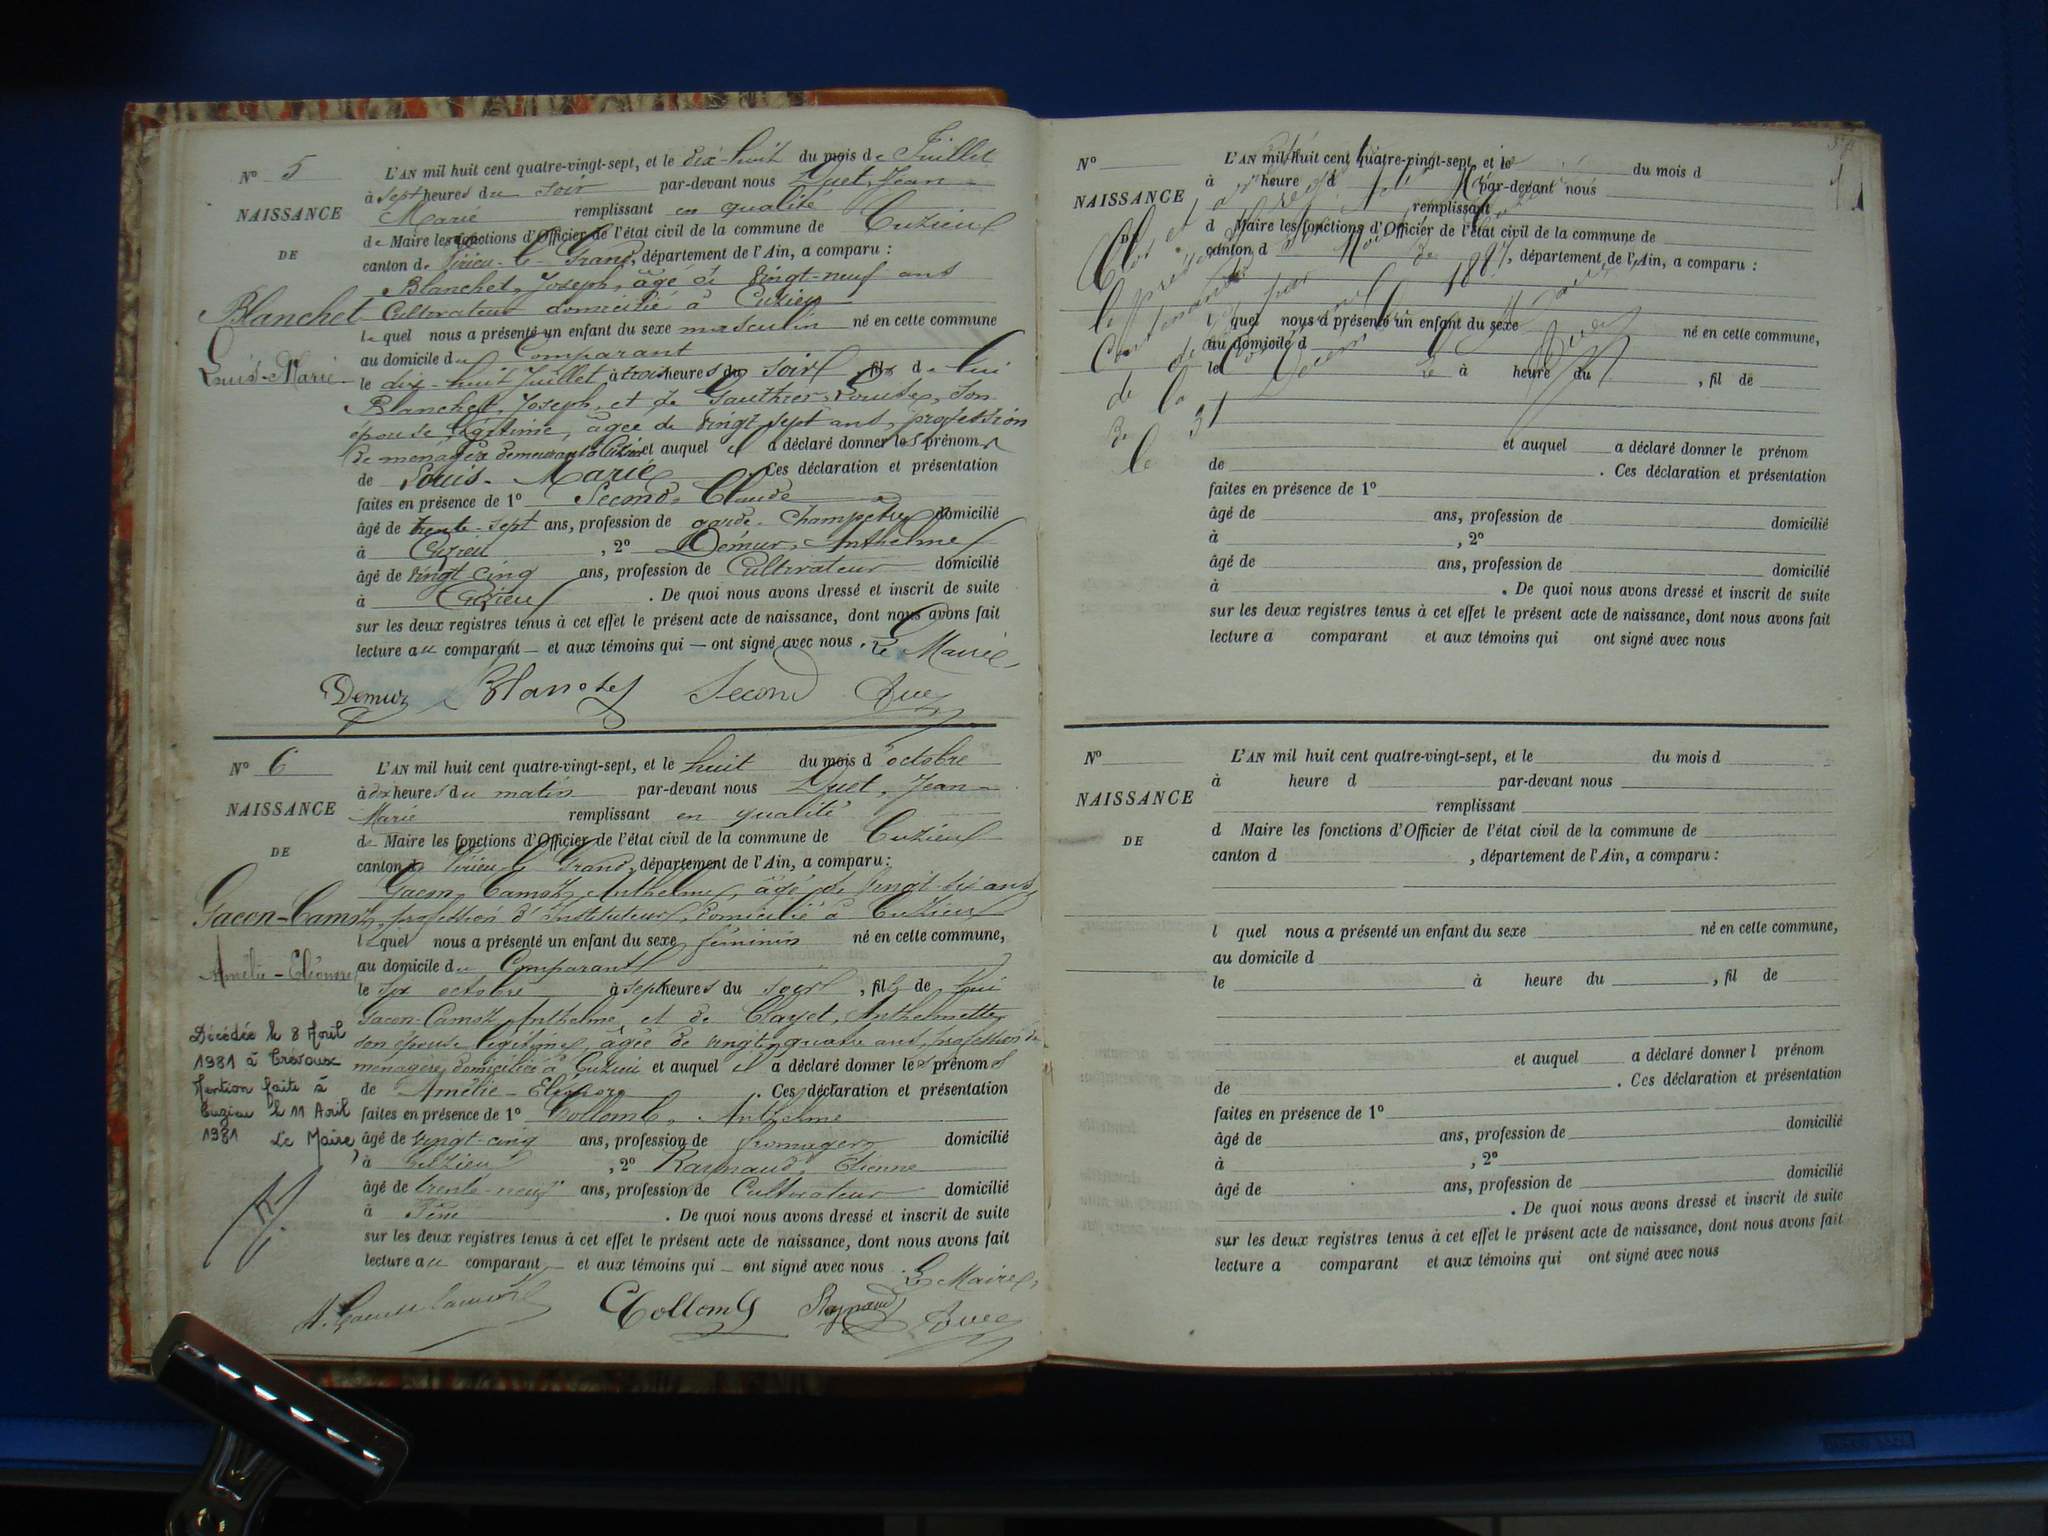 N° 5
NAISSANCE
DE
Blanchet
Louis-Marie
L'AN mil huit cent quatre-vingt-sept, et le dix-huit du mois de Juillet
à sept heures du soir par-devant nous Duet, Jean-
Marie remplissant en qualité
de Maire les fonctions d'Officier de l'état civil de la commune de Cuzieu
canton de Virieu-le-Grand, département de l'Ain, a comparu :
Blanchet, Joseph, âgé de vingt-neuf ans
Cultivateur domicilié à Cuzieu
lequel nous a présenté un enfant du sexe masculin né en cette commune
au domicile du Comparant
le dix-huit Juillet à trois heures du soir, fils de lui
Blanchet, Joseph, et de Gauthier, Louise, son
épouse légitime, âgée de vingt sept ans, profession
de ménagère demeurant à Cuzieu et auquel il a déclaré donner les prénoms
de Louis-Marie Ces déclaration et présentation
faites en présence de 1° Second, Claude
âgé de trente-sept ans, profession de garde-Champêtre domicilié
à Cuzieu, 2° Demur, Anthelme
âgé de vingt-cinq ans, profession de Cultivateur domicilié
à Cuzieu. De quoi nous avons dressé et inscrit de suite
sur les deux registres tenus à cet effet le présent acte de naissance, dont nous avons fait
lecture au comparant — et aux témoins qui — ont signé avec nous. Le Maire,
Demur Blanchet Second Duet
N° 6
NAISSANCE
DE
Gacon-Camoz
Amélie-Eléonore
Décédée le 8 Avril
1981 à Trévoux
Mention faite à
Cuzieu le 11 Avril
1981 Le Maire,
L'AN mil huit cent quatre-vingt-sept, et le huit du mois d'octobre
à dix heures du matin par-devant nous Duet, Jean-
Marie remplissant en qualité
de Maire les fonctions d'Officier de l'état civil de la commune de Cuzieu
canton de Virieu-le-Grand, département de l'Ain, a comparu :
Gacon-Camoz, Anthelme, âgé de vingt-six ans,
profession d'Instituteur, domicilié à Cuzieu
lequel nous a présenté un enfant du sexe féminin né en cette commune,
au domicile du Comparant
le six octobre à sept heures du soir, fille de lui
Gacon-Camoz, Anthelme, et de Cayet, Anthelmette
son épouse légitime, âgée de vingt-quatre ans, profession de
ménagère, domiciliée à Cuzieu et auquel il a déclaré donner les prénoms
de Amélie-Eléonore. Ces déclaration et présentation
faites en présence de 1° Collomb, Anthelme
âgé de vingt-cinq ans, profession de fromager domicilié
à Cuzieu, 2° Raynaud, Etienne
âgé de trente-neuf ans, profession de Cultivateur domicilié
à . De quoi nous avons dressé et inscrit de suite
sur les deux registres tenus à cet effet le présent acte de naissance, dont nous avons fait
lecture au comparant — et aux témoins qui — ont signé avec nous. Le Maire,
A. Gacon Camoz Collomb Raynaud Duet
N°
NAISSANCE
DE
L'AN mil huit cent quatre-vingt-sept, et le du mois d
à heure d par-devant nous
remplissant
d Maire les fonctions d'Officier de l'état civil de la commune de
canton d , département de l'Ain, a comparu :
l quel nous a présenté un enfant du sexe né en cette commune,
au domicile d
le à heure du , fil de
et auquel a déclaré donner le prénom
de . Ces déclaration et présentation
faites en présence de 1°
âgé de ans, profession de domicilié
à , 2°
âgé de ans, profession de domicilié
à . De quoi nous avons dressé et inscrit de suite
sur les deux registres tenus à cet effet le présent acte de naissance, dont nous avons fait
lecture a comparant et aux témoins qui ont signé avec nous
Clos et
le présent
de
31
1887
Maire
Duet
N°
NAISSANCE
DE
L'AN mil huit cent quatre-vingt-sept, et le du mois d
à heure d par-devant nous
remplissant
d Maire les fonctions d'Officier de l'état civil de la commune de
canton d , département de l'Ain, a comparu :
l quel nous a présenté un enfant du sexe né en cette commune,
au domicile d
le à heure du , fil de
et auquel a déclaré donner l prénom
de . Ces déclaration et présentation
faites en présence de 1°
âgé de ans, profession de domicilié
à , 2°
âgé de ans, profession de domicilié
. De quoi nous avons dressé et inscrit de suite
sur les deux registres tenus à cet effet le présent acte de naissance, dont nous avons fait
lecture a comparant et aux témoins qui ont signé avec nous